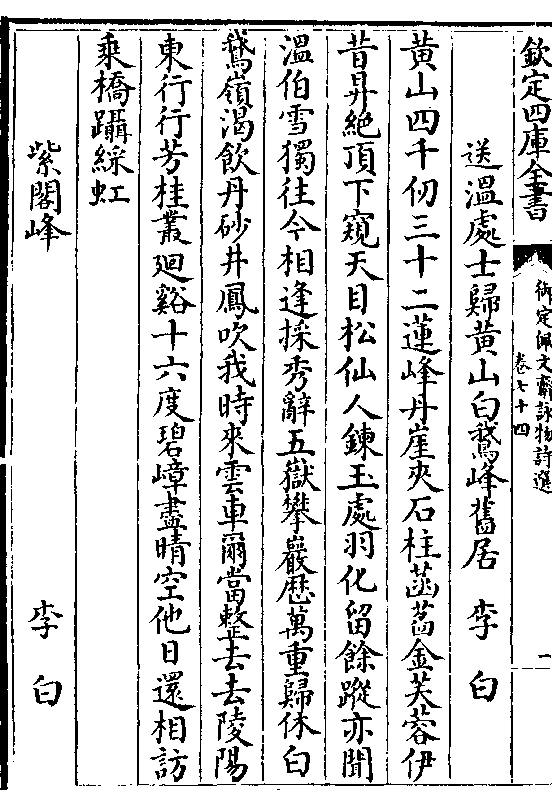 欽定四庫全書
御定佩文齋詠物詩選
卷七十四
一
送溫處士歸黄山白鵞峰舊居 李白
黄山四千仞三十二蓮峰丹崖夾石柱菡萏金芙蓉伊
昔昇絶頂下窺天目松仙人鍊玉處羽化留餘蹤亦聞
溫伯雪獨往今相逢採秀辭五嶽攀巖歴萬重歸休白
鵞嶺渴飲丹砂井鳳吹我時來雲車爾當整去去陵陽
東行行芳桂叢廻谿十六度碧嶂盡晴空他日還相訪
乘橋躡綵虹
紫閣峰 李白